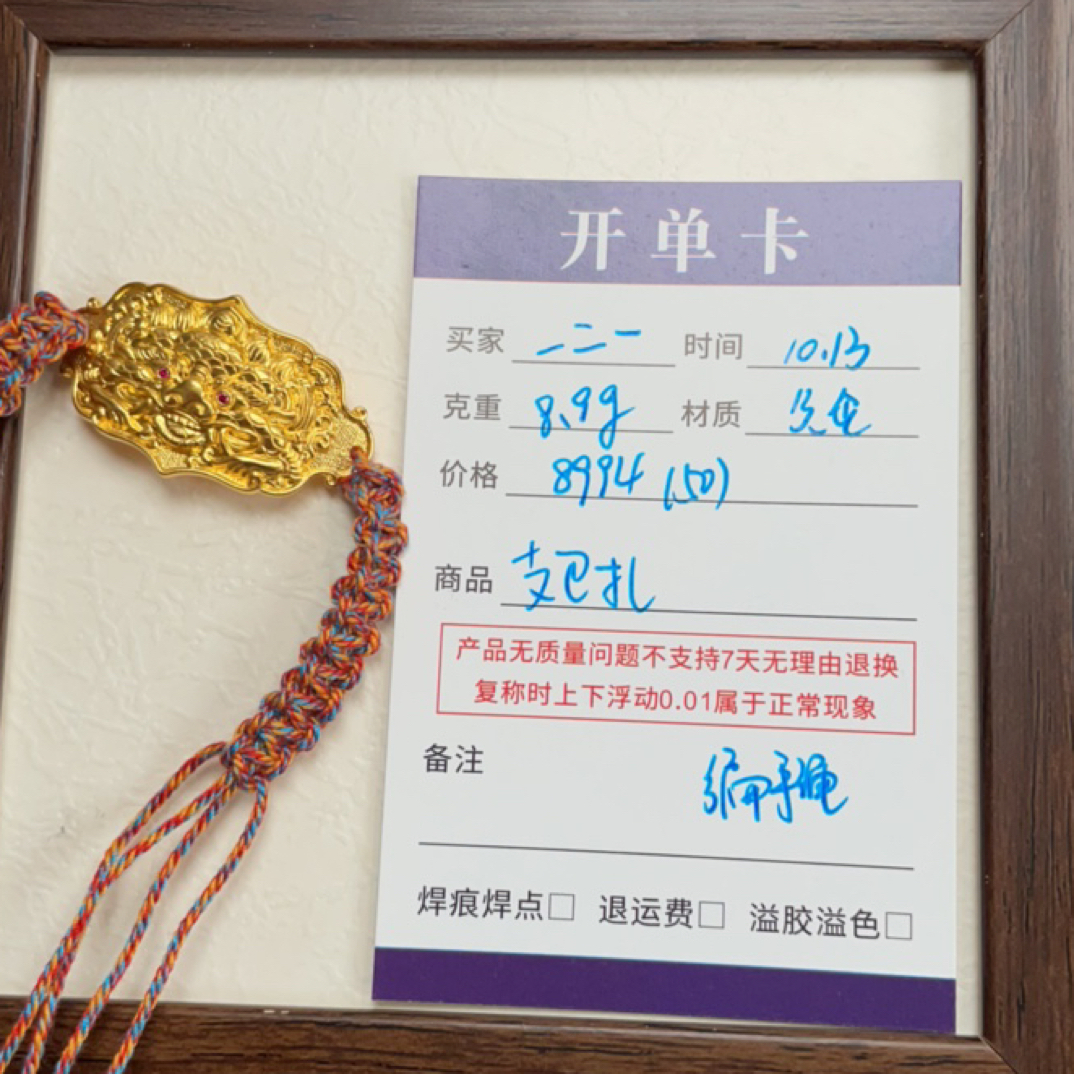 开单卡
买家 一二一 时间 10.13
克重 8.99g 材质
价格 8994 (50)
商品 支巴扎
产品无质量问题不支持7天无理由退换
复称时上下浮动0.01属于正常现象
备注 编手绳
焊痕焊点□ 退运费□ 溢胶溢色□